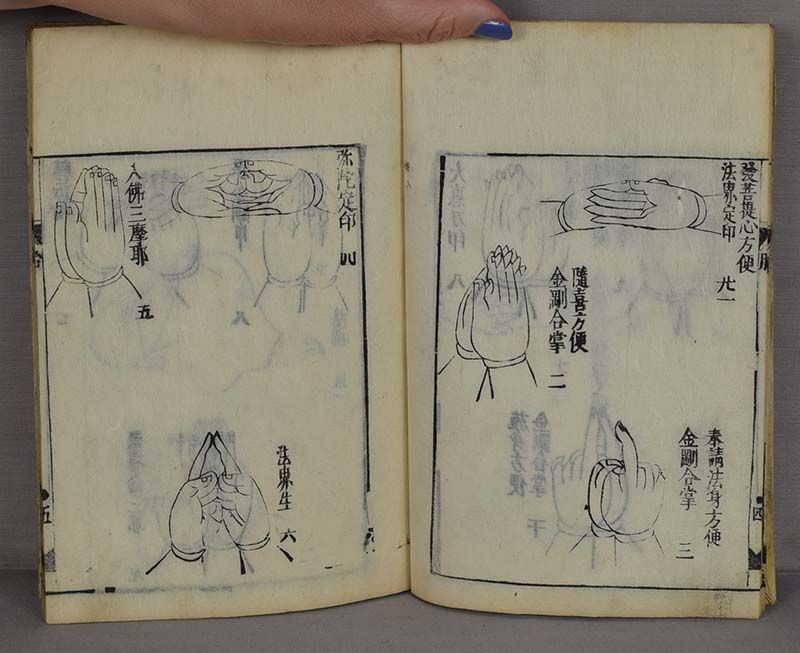 發菩提心方便
法界定印 一
隨喜方便
金剛合掌 二
奉請法身方便
金剛合掌 三
四
弥陀定印
入佛三摩耶 五
法界生 六
五